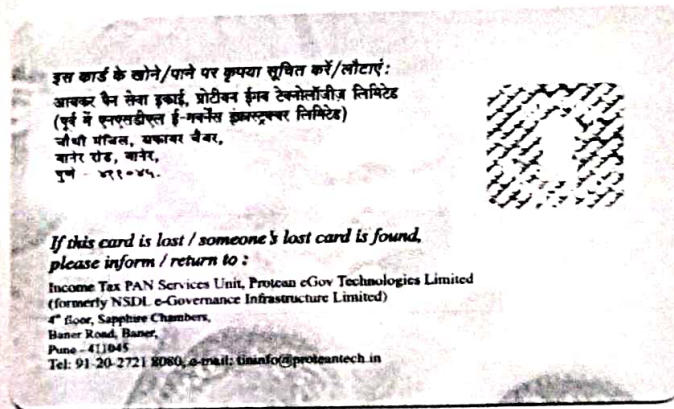 इस कार्ड के खोने/पाने पर कृपया सूचित करें/लौटाएं:
आयकर पैन सेवा इकाई, प्रोटीयन ईगव टेक्नोलॉजीज़ लिमिटेड
(पूर्व में एनएसडीएल ई-गवर्नेंस इंफ्रास्ट्रक्चर लिमिटेड)
चौथी मंजिल, सफायर चैंबर,
बानेर रोड, बानेर,
पुणे - ४११०४५.
If this card is lost / someone's lost card is found,
please inform / return to :
Income Tax PAN Services Unit, Protean eGov Technologies Limited
(formerly NSDL e-Governance Infrastructure Limited)
4th floor, Sapphire Chambers,
Baner Road, Baner,
Pune - 411045
Tel: 91-20-2721 8080, e-mail: tininfo@proteantech.in